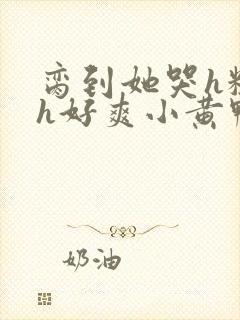 脔到她哭h粗
h好爽小黄鸭
奶油